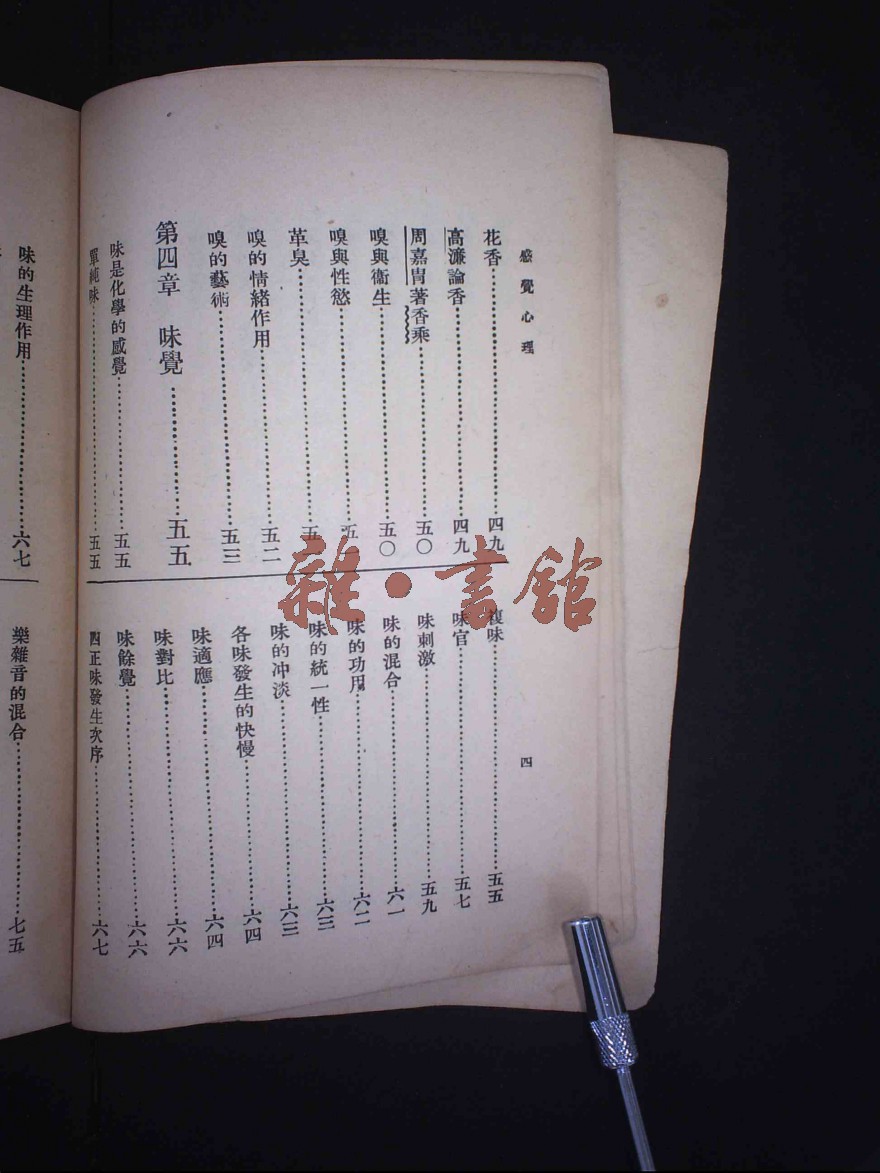 感覺心理
四
花香……四九
高濂論香……四九
周嘉冑著香乘……五〇
嗅與衞生……五〇
嗅與性慾……五一
革臭……五
嗅的情緒作用……五二
嗅的藝術……五三
第四章 味覺……五五
味是化學的感覺……五五
單純味……五五
複味……五五
味官……五七
味刺激……五九
味的混合……六一
味的功用……六二
味的統一性……六三
味的冲淡……六三
各味發生的快慢……六四
味適應……六四
味對比……六六
味餘覺……六六
四正味發生次序……六七
味的生理作用……六七
樂雜音的混合……七五
雜·書館